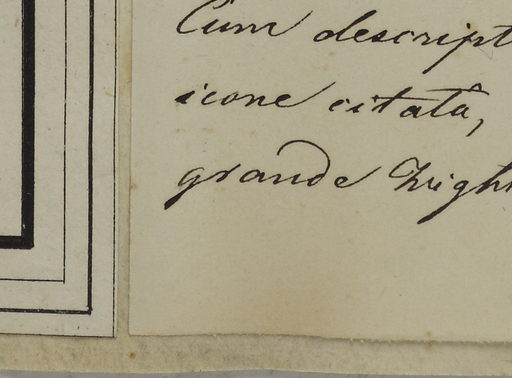 Cum descript
icone citatâ,
grande Wight